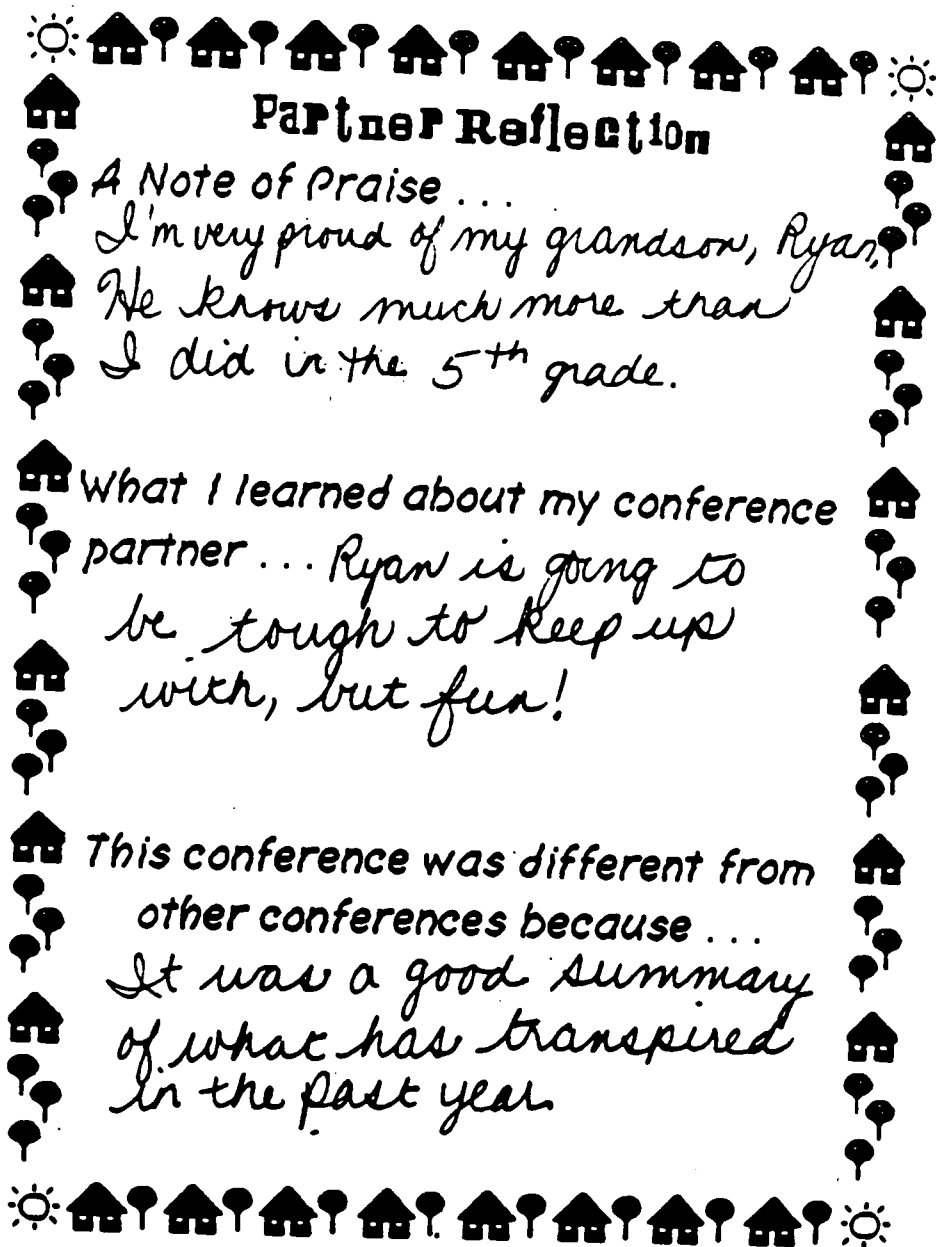 Partner Reflection
A Note of Praise ...
I'm very proud of my grandson, Ryan.
He knows much more than
I did in the 5th grade.
What I learned about my conference
partner ... Ryan is going to
be tough to keep up
with, but fun!
This conference was different from
other conferences because ...
It was a good summary
of what has transpired
in the past year.